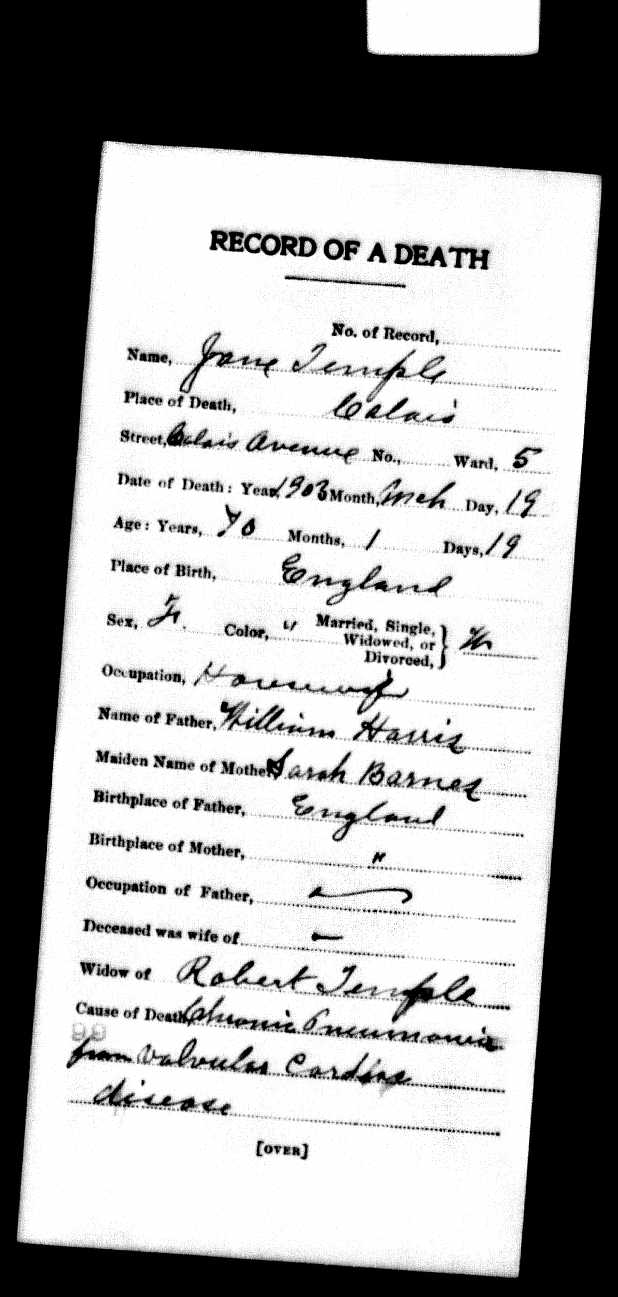 RECORD OF A DEATH
No. of Record,
Name, Jane Temple
Place of Death, Calais
Street, Calais Avenue No., Ward, 5
Date of Death: Year, 1903 Month, Mch Day, 19
Age: Years, 70 Months, 1 Days, 19
Place of Birth, England
Sex, F. Color, W Married, Single, Widowed, or Divorced, } W
Occupation, Housewife
Name of Father, William Harris
Maiden Name of Mother, Sarah Barnes
Birthplace of Father, England
Birthplace of Mother, "
Occupation of Father, —
Deceased was wife of —
Widow of Robert Temple
Cause of Death, Chronic Pneumonia
99
from Valvular Cardiac
disease
[OVER]